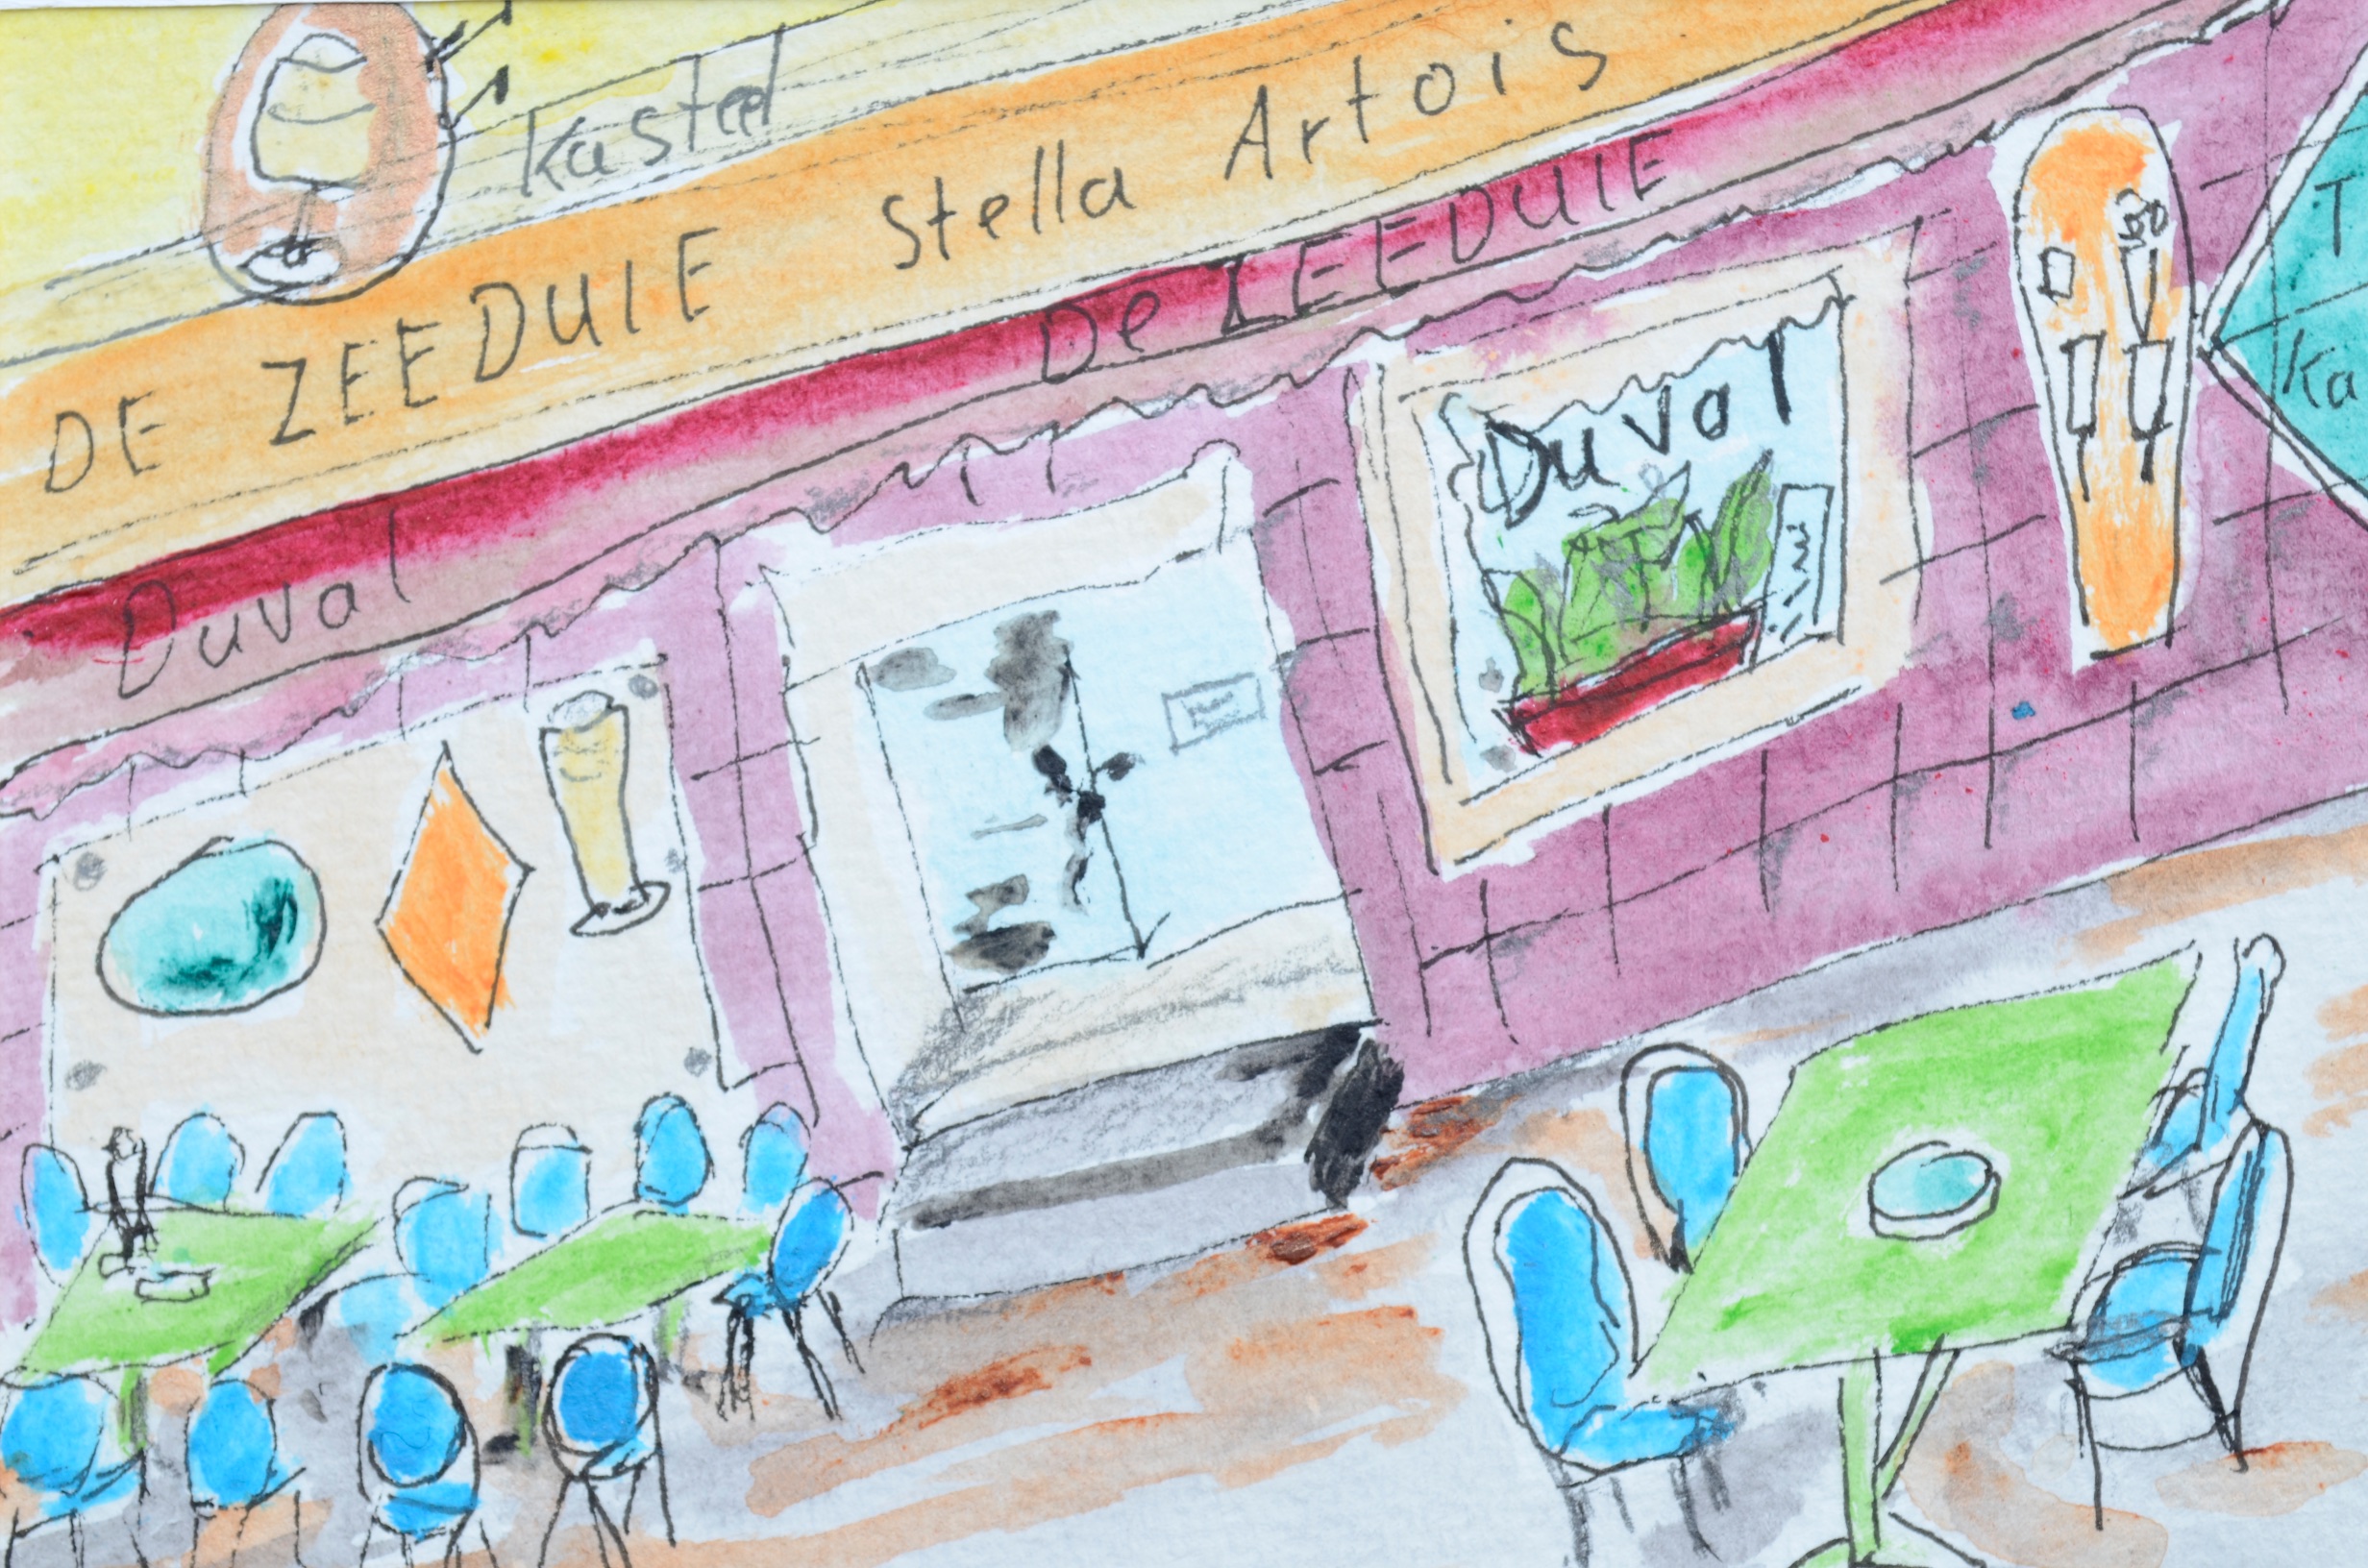 Kasteel
DE ZEEDUIE Stella Artois
De ZEEDUIE
Duval
Duval
T
Ka